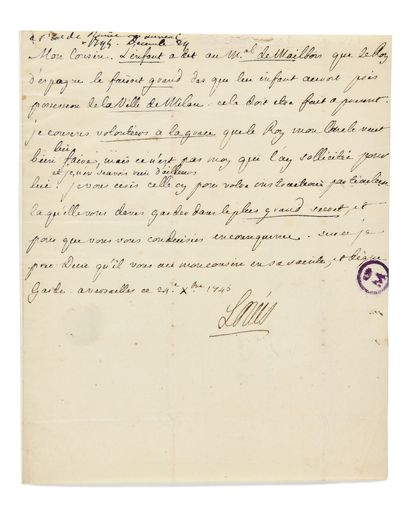 1745 Decembre 24
Mon Cousin. L'enfant a dit au M.al de Maillbois que le Roy
d'espagne le feroit grand des que lui enfant auroit pris
possession de la Ville de Milan, cela doit estre fait a present.
je concours volontiers a la grace que le Roy mon Oncle veut
lui
bien faire, mais ce n'est pas moy qui l'ay sollicitée pour
et je n'en scavois rien d'ailleurs
lui. je vous ecris celle cy pour votre instruction particuliere
laquelle vous deves garder dans le plus grand secret, et
pour que vous vous conduisiés en consequence. sur ce je
prie Dieu qu'il vous ait mon cousin en sa sainte, et digne
Garde. a versailles ce 24.e Xbre 1745
Louis